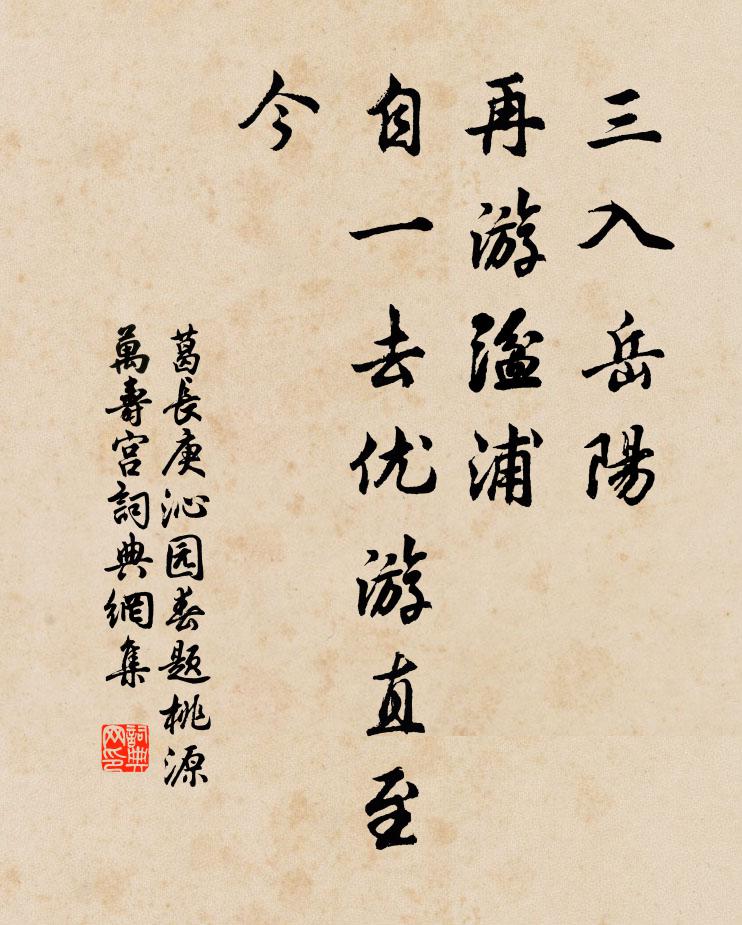 三入岳陽
再游湓浦
自一去优游直至
今
葛長庚沁园春题桃源
萬壽宫詞典網集
詞典网印